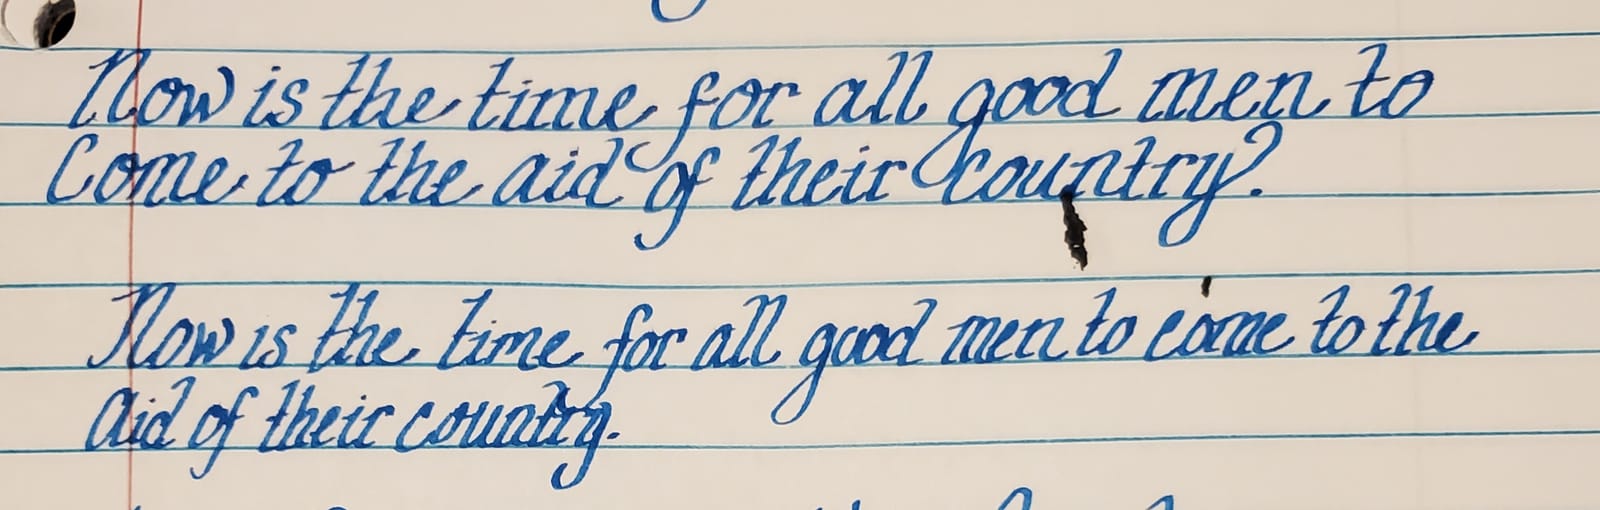 Now is the time for all good men to
Come to the aid of their country?
Now is the time for all good men to come to the
aid of their country.